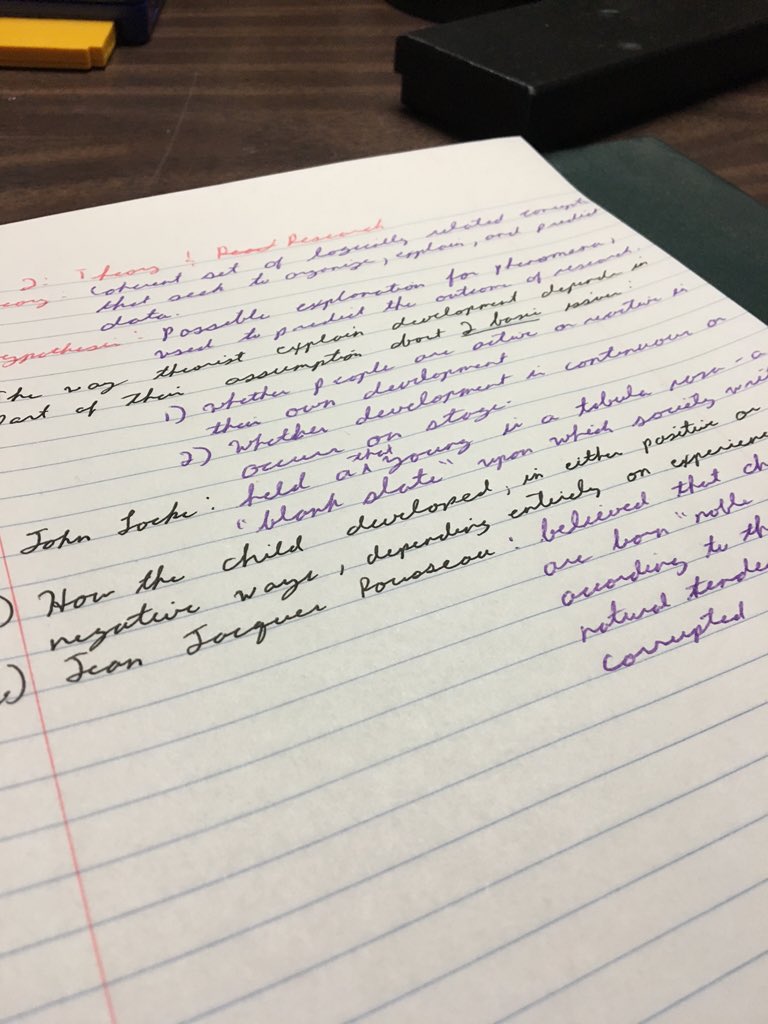 2: Theory & Research
eory: Coherent set of logically related concepts
that seek to organize, explain, and predict
data.
ypothesis: Possible explanation for phenomena,
used to predict the outcome of research.
The way theorist explain development depends in
Part of their assumption about 2 basic issues:
1) Whether people are active or reactive in
their own development
2) Whether development is continuous or
occurs on stage.
John Locke: held that a young is a tabula rosa - a
"blank slate" upon which society writ
) How the child developed, in either positive or
negative ways, depending entirely on experienc
) Jean Jacques Rousseau: believed that ch
are born "noble
according to the
natural tende
corrupted